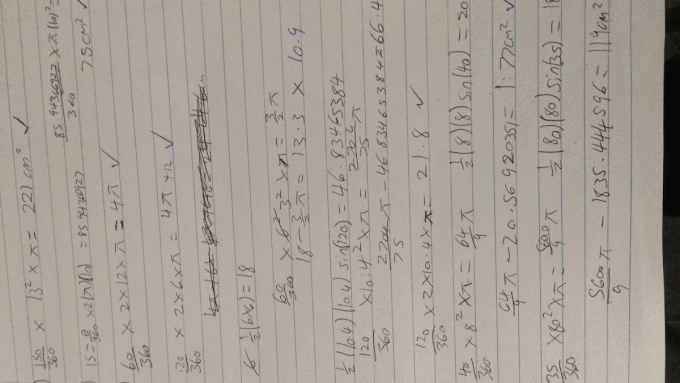 150/360 × 13² × π = 221 cm² ✓
15 = θ/360 × 2(π)(10) = 85.94366927
85.94366927/360 × π(10)² =
75cm²
60/360 × 2 × 12 × π = 4π ✓
120/360 × 2 × 6 × π = 4π + 12 ✓
½(6×6) = 18
60/360 × 3² × π = 3/2 π
18 - 3/2 π = 13.3 × 10.9
½(10.4)(10.4) sin(120) = 46.83465384
120/360 × 10.4² × π = 2704/75 π
2704/75 π - 46.83465384 = 66.4
120/360 × 2 × 10.4 × π = 21.8 ✓
40/360 × 8² × π = 64/9 π
½(8)(8) sin(40) = 20
64/9 π - 20.5692035 = 1.77cm² ✓
35/360 × 80² × π = 5600/9 π
½(80)(80) sin(35) = 18
5600/9 π - 1835.444596 = 119cm²